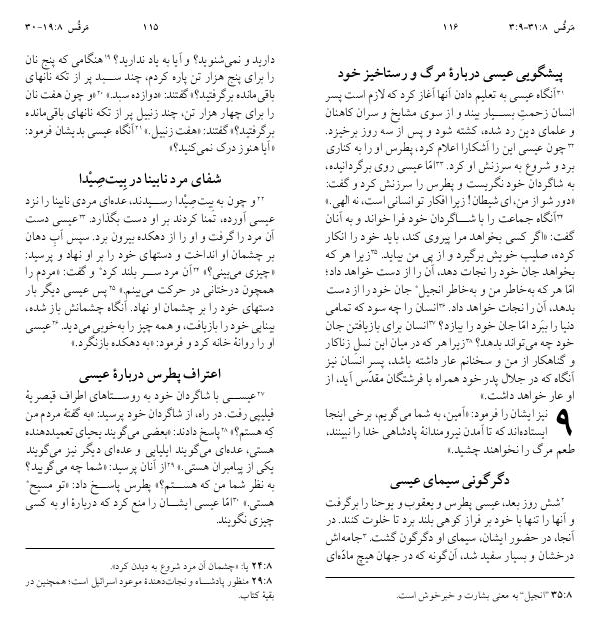 مَرقُس ۱۹:۸-۳۰
۱۱۵
دارید و نمی‌شنوید؟ و آیا به یاد ندارید؟ ۱۹هنگامی که پنج نان
را برای پنج هزار تن پاره کردم، چند سبد پر از تکه نانهای
باقی‌مانده برگرفتید؟» گفتند: «دوازده سبد.» ۲۰«و چون هفت نان
را برای چهار هزار تن، چند زنبیل پر از تکه نانهای باقی‌مانده
برگرفتید؟» گفتند: «هفت زنبیل.» ۲۱آنگاه عیسی بدیشان فرمود:
«آیا هنوز درک نمی‌کنید؟»
شفای مرد نابینا در بِیت‌صِیْدا
۲۲و چون به بِیت‌صِیْدا رسیدند، عده‌ای مردی نابینا را نزد
عیسی آورده، تمنا کردند بر او دست بگذارد. ۲۳عیسی دست
آن مرد را گرفت و او را از دهکده بیرون برد. سپس آبِ دهان
بر چشمان او انداخت و دستهای خود را بر او نهاد و پرسید:
«چیزی می‌بینی؟» ۲۴آن مرد سر بلند کرد* و گفت: «مردم را
همچون درختانی در حرکت می‌بینم.» ۲۵پس عیسی دیگر بار
دستهای خود را بر چشمان او نهاد. آنگاه چشمانش باز شده،
بینایی خود را بازیافت، و همه چیز را به‌خوبی می‌دید. ۲۶عیسی
او را روانهٔ خانه کرد و فرمود: «به دهکده بازنگرد.»
اعتراف پطرس دربارهٔ عیسی
۲۷عیسی با شاگردان خود به روستاهای اطراف قیصریهٔ
فیلیپی رفت. در راه، از شاگردان خود پرسید: «به گفتهٔ مردم من
که هستم؟» ۲۸پاسخ دادند: «بعضی می‌گویند یحیای تعمیددهنده
هستی، عده‌ای می‌گویند ایلیایی و عده‌ای دیگر نیز می‌گویند
یکی از پیامبران هستی.» ۲۹از آنان پرسید: «شما چه می‌گویید؟
به نظر شما من که هستم؟» پطرس پاسخ داد: «تو مسیح*
هستی.» ۳۰اما عیسی ایشان را منع کرد که دربارهٔ او به کسی
چیزی نگویند.
۲۴:۸ یا: «چشمان آن مرد شروع به دیدن کرد».
۲۹:۸ منظور پادشاه و نجات‌دهندهٔ موعود اسرائیل است؛ همچنین در
بقیهٔ کتاب.
۱۱۶
مَرقُس ۳۱:۸-۳:۹
پیشگویی عیسی دربارهٔ مرگ و رستاخیز خود
۳۱آنگاه عیسی به تعلیم دادن آنها آغاز کرد که لازم است پسر
انسان زحمتِ بسیار بیند و از سوی مشایخ و سران کاهنان
و علمای دین رد شده، کشته شود و پس از سه روز برخیزد.
۳۲چون عیسی این را آشکارا اعلام کرد، پطرس او را به کناری
برد و شروع به سرزنش او کرد. ۳۳امّا عیسی روی برگردانیده،
به شاگردان خود نگریست و پطرس را سرزنش کرد و گفت:
«دور شو از من، ای شیطان! زیرا افکار تو انسانی است، نه الهی.»
۳۴آنگاه جماعت را با شاگردان خود فرا خواند و به آنان
گفت: «اگر کسی بخواهد مرا پیروی کند، باید خود را انکار
کرده، صلیب خویش برگیرد و از پی من بیاید. ۳۵زیرا هر که
بخواهد جان خود را نجات دهد، آن را از دست خواهد داد؛
امّا هر که به‌خاطر من و به‌خاطر انجیل* جان خود را از دست
بدهد، آن را نجات خواهد داد. ۳۶انسان را چه سود که تمامی
دنیا را ببَرد امّا جان خود را ببازد؟ ۳۷انسان برای بازیافتن جان
خود چه می‌تواند بدهد؟ ۳۸زیرا هر که در میان این نسل زناکار
و گناهکار از من و سخنانم عار داشته باشد، پسر انسان نیز
آنگاه که در جلال پدر خود همراه با فرشتگان مقدّس آید، از
او عار خواهد داشت.»
۹ نیز ایشان را فرمود: «آمین، به شما می‌گویم، برخی اینجا
ایستاده‌اند که تا آمدن نیرومندانهٔ پادشاهی خدا را نبینند،
طعم مرگ را نخواهند چشید.»
دگرگونی سیمای عیسی
۲شش روز بعد، عیسی پطرس و یعقوب و یوحنا را برگرفت
و آنها را تنها با خود بر فراز کوهی بلند برد تا خلوت کنند. در
آنجا، در حضور ایشان، سیمای او دگرگون گشت. ۳جامه‌اش
درخشان و بسیار سفید شد، آن‌گونه که در جهان هیچ مادّه‌ای
۳۵:۸ "انجیل" به معنی بشارت و خبرخوش است.